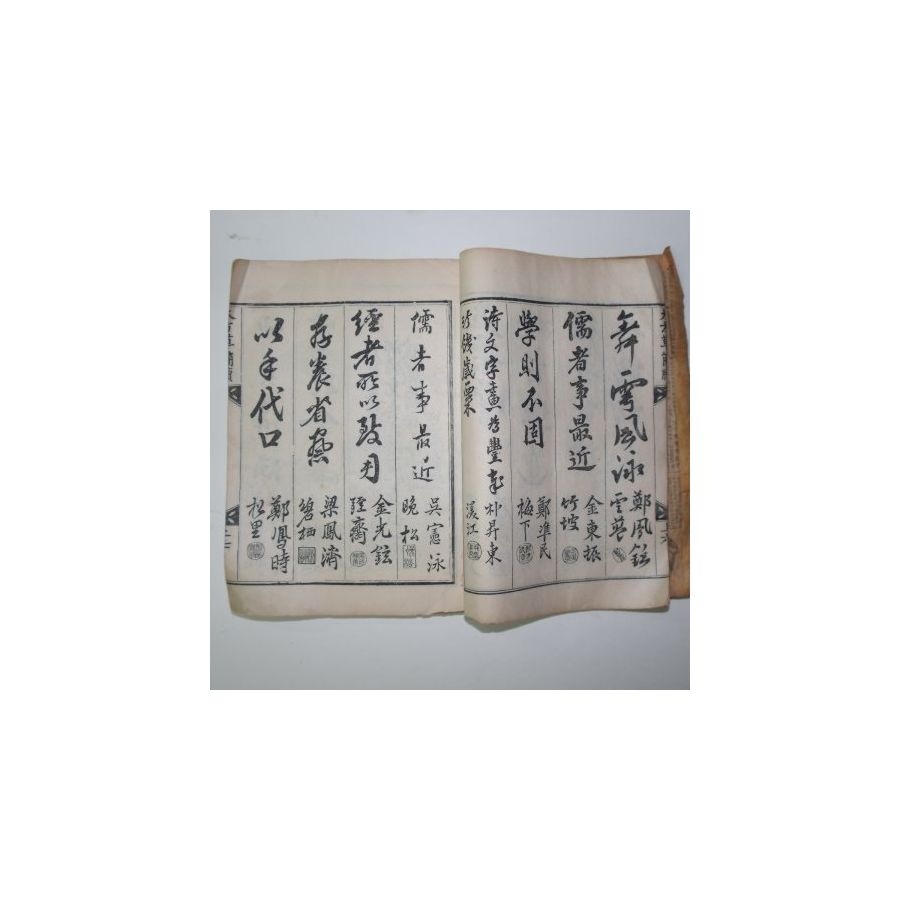 舞雩風泳
鄭鳳鉉
雲藝
儒者事最近
金東振
竹坡
學則不固
鄭準民
梅下
詩文字意爲豐年
朴昇東
渼江
儒者事最近
吳憲泳
晩松
經者所以致用
金光鉉
經齋
存養省察
梁鳳濟
碧栖
以手代口
鄭鳳時
松里